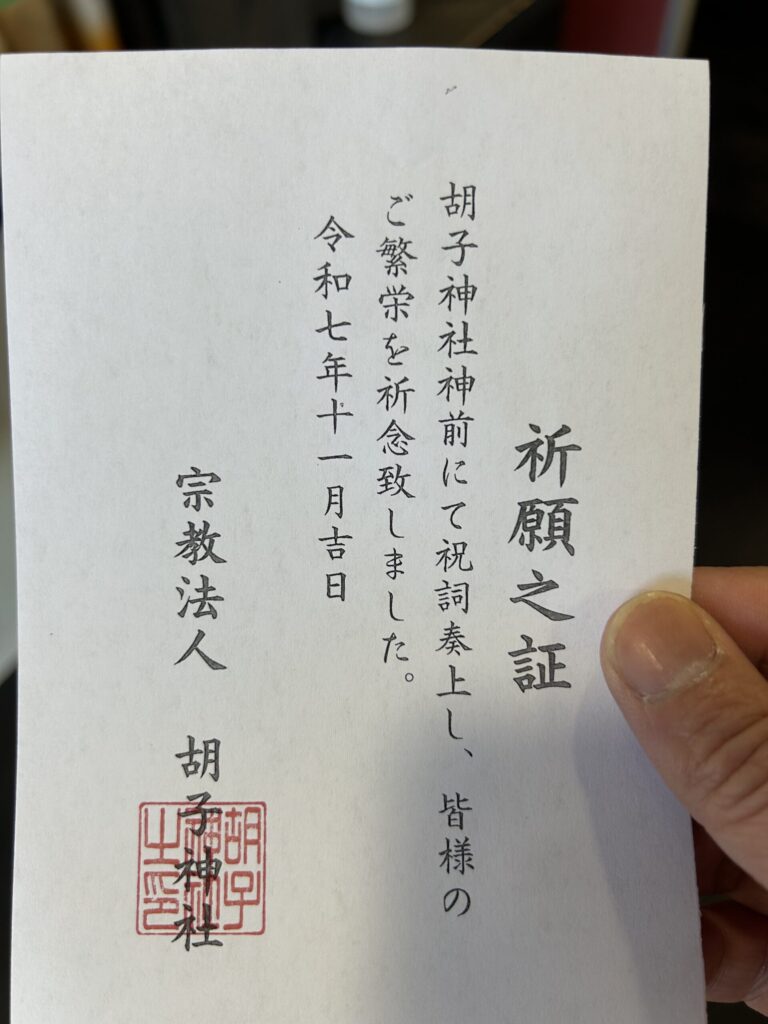 祈願之証
胡子神社神前にて祝詞奏上し、皆様の
ご繁栄を祈念致しました。
令和七年十一月吉日
宗教法人 胡子神社
胡子
神社
之印